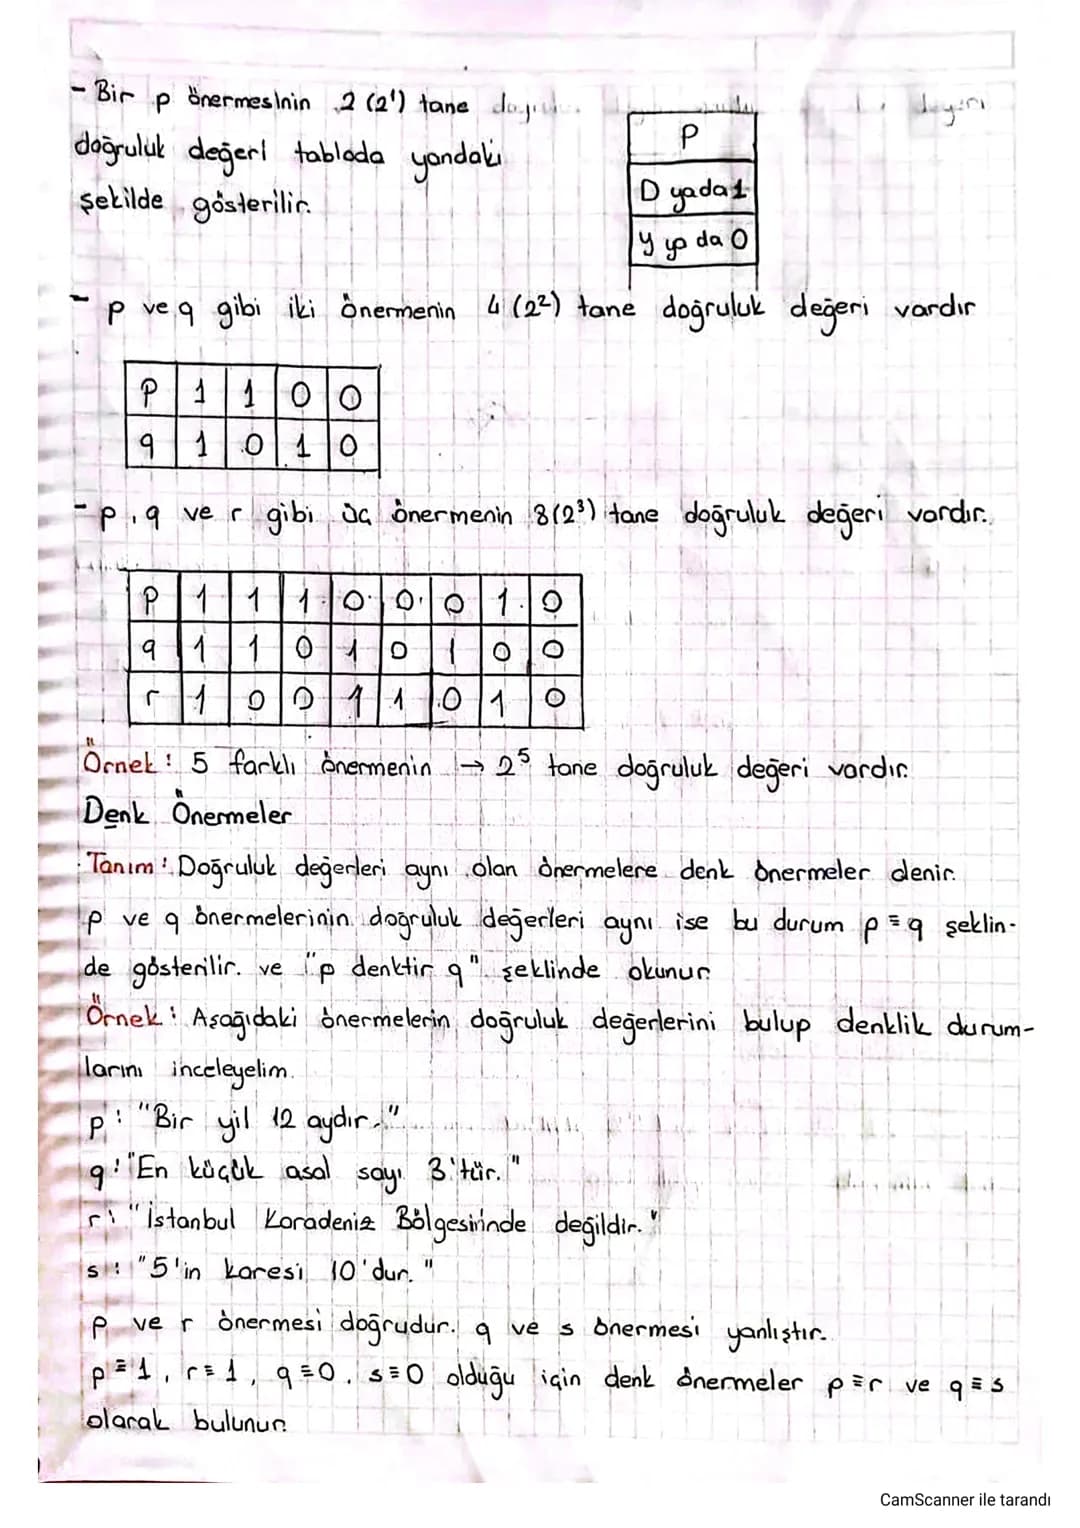 - Bir p önermesinin 2 (2¹) tane
doğruluk değeri tabloda yandaki
şekilde gösterilir.
P
D yada 1
y ya da 0
- p ve q gibi iki önermenin 4 (2²) tane doğruluk değeri vardır
P 1 1 0 0
q 1 0 1 0
- p, q ve r gibi üç önermenin 8(2³) tane doğruluk değeri vardır.
P 1 1 1 0 0 0 1 0
q 1 1 0 1 0 1 0 0
r 1 0 0 1 1 0 1 0
Örnek: 5 farklı önermenin → 2⁵ tane doğruluk değeri vardır.
Denk Önermeler
Tanım: Doğruluk değerleri aynı olan önermelere denk önermeler denir.
p ve q önermelerinin doğruluk değerleri aynı ise bu durum p≡q şeklin-
de gösterilir. ve "p denktir q" şeklinde okunur.
Örnek: Aşağıdaki önermelerin doğruluk değerlerini bulup denklik durum-
larını inceleyelim.
p: "Bir yil 12 aydır."
q: "En küçük asal sayı 3'tür."
r: "İstanbul Karadeniz Bölgesirinde değildir."
s: "5'in karesi 10'dur."
P ve r önermesi doğrudur. q ve s önermesi yanlıştır.
p≡1, r≡1, q≡0, s≡0 olduğu için denk önermeler p≡r ve q≡s
olarak bulunur.
CamScanner ile tarandı